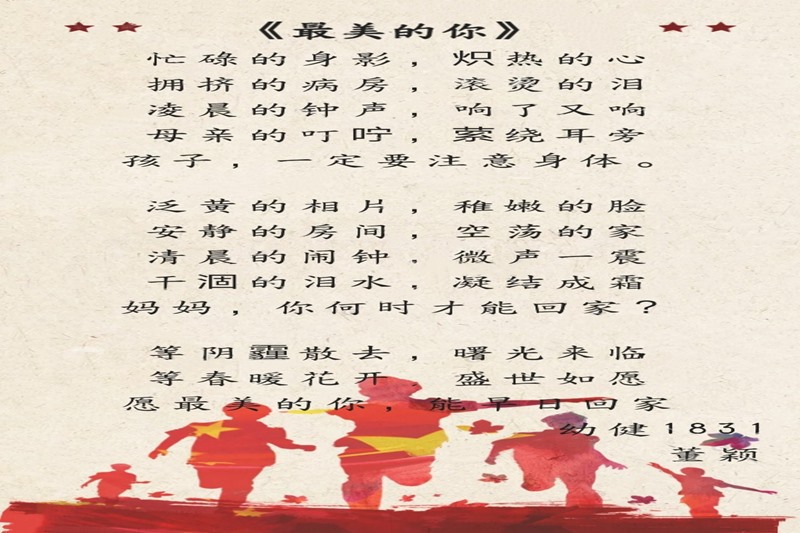 《最美的你》
忙碌的身影，炽热的心
拥挤的病房，滚烫的泪
凌晨的钟声，响了又响
母亲的叮咛，萦绕耳旁
孩子，一定要注意身体。
泛黄的相片，稚嫩的脸
安静的房间，空荡的家
清晨的闹钟，微声一震
干涸的泪水，凝结成霜
妈妈，你何时才能回家？
等阴霾散去，曙光来临
等春暖花开，盛世如愿
愿最美的你，能早日回家
幼健1831
董颖